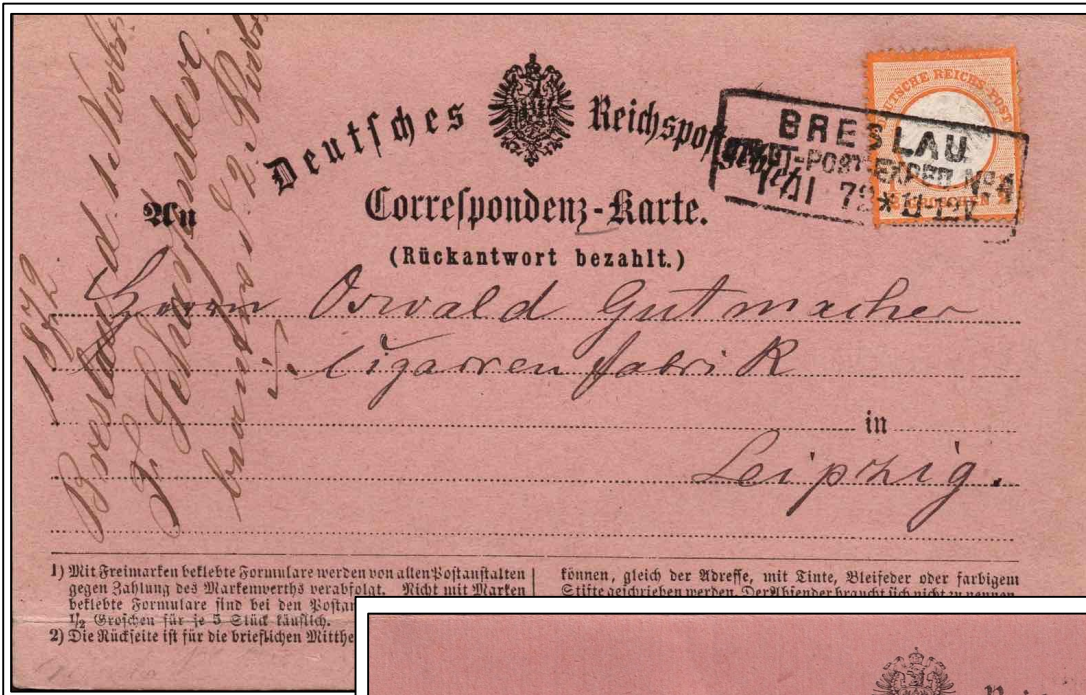 Deutsches Reichspostgebiet
Correspondenz-Karte.
(Rückantwort bezahlt.)
An
DEUTSCHE REICHS-POST
BRESLAU
POST-EXPED. No 4
11 72 * 11-12 V.
Herrn Oswald Gutmacher
Cigarren fabriK
in
Leipzig.
1872
Breslau d.
1) Mit Freimarken beklebte Formulare werden von allen Postanstalten
gegen Zahlung des Markenwerths verabfolgt. Nicht mit Marken
beklebte Formulare sind bei den Postan
1/2 Groschen für je 5 Stück käuflich.
2) Die Rückseite ist für die brieflichen Mitthe
können, gleich der Adresse, mit Tinte, Bleifeder oder farbigem
Stifte geschrieben werden. Der Absender braucht sich nicht zu nennen